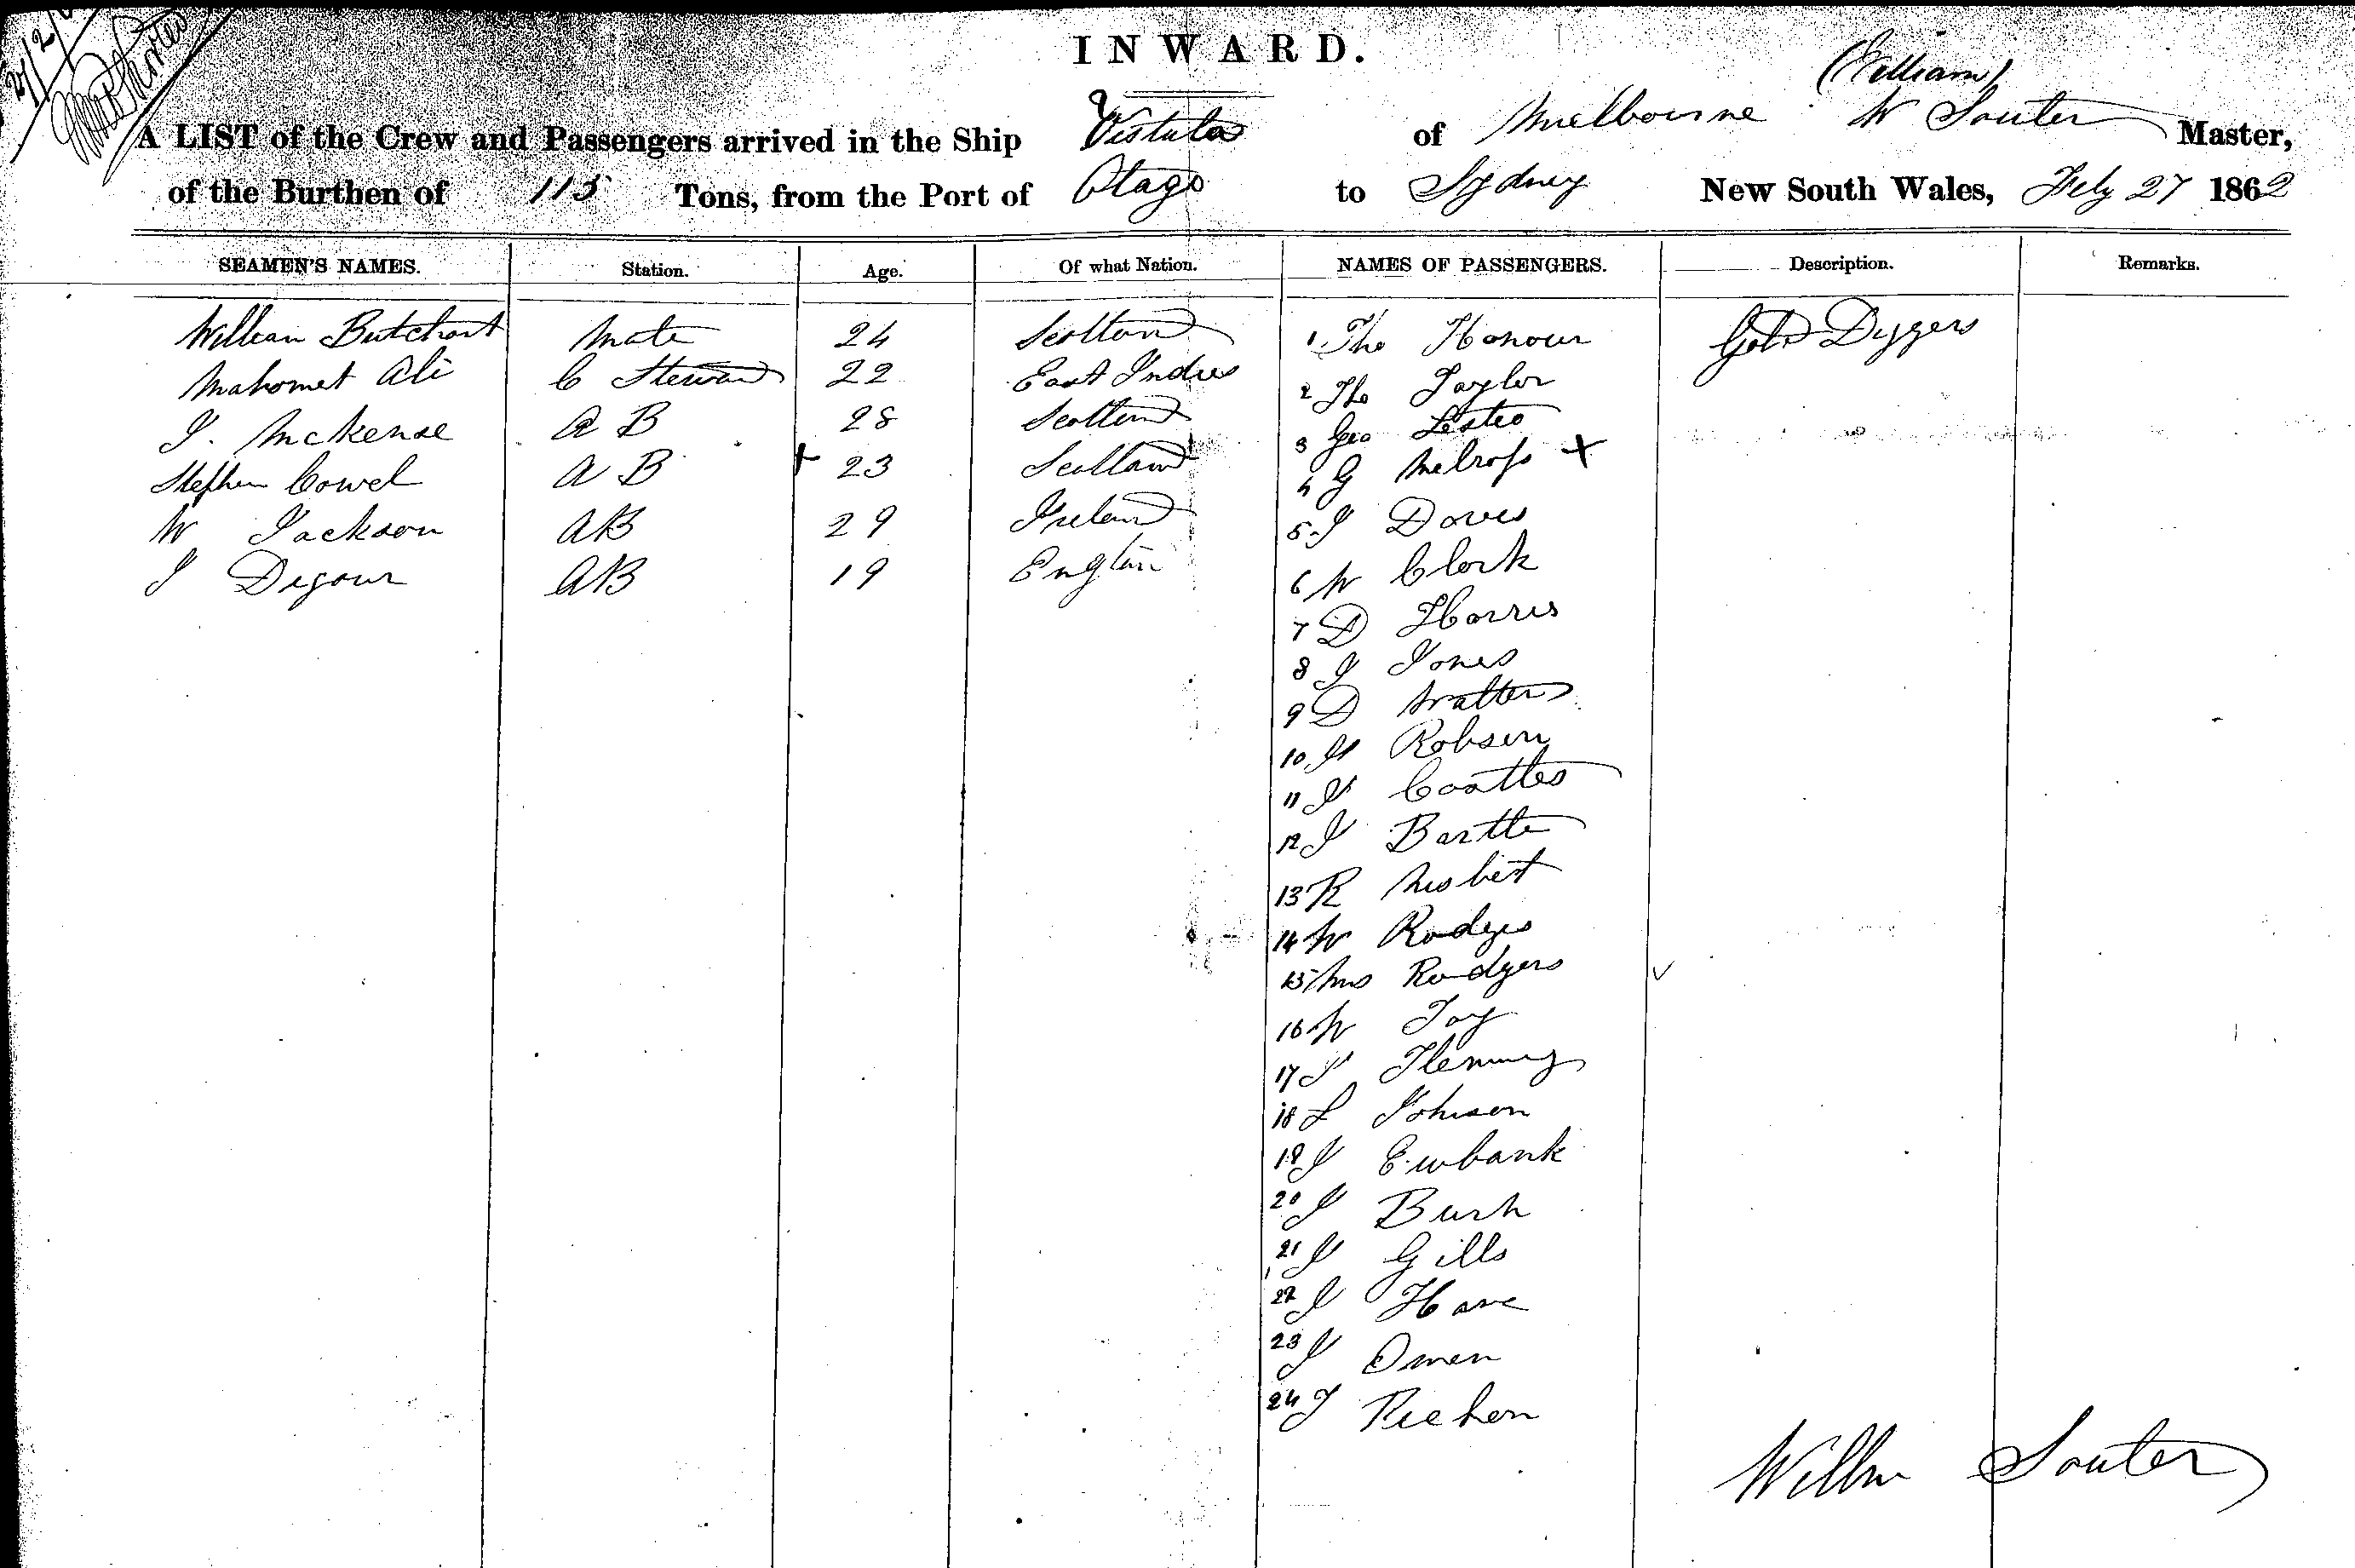 27/2/
INWARD.
(William)
A LIST of the Crew and Passengers arrived in the Ship Vistula of Melbourne W Souter Master,
of the Burthen of 115 Tons, from the Port of Otago to Sydney New South Wales, Feby 27 1862
SEAMEN'S NAMES. Station. Age. Of what Nation. NAMES OF PASSENGERS. Description. Remarks.
William Butchart Mate 24 Scotland 1 Tho Honour Gold Diggers
Mahomet Ali C Steward 22 East Indies 2 Tho Taylor
J. McKense A B 28 Scotland 3 Geo
Stephen Cowel A B + 23 Scotland 4 G Melross +
W Jackson AB 29 Ireland 5 J Daves
J AB 19 England 6 W Clark
7 D Harris
8 J Jones
9 D Watters
10 H Robson
11 J Coattes
12 J Bartte
13 R Nesbit
14 W Rodges
15 Mrs Rodgers
16 W Toy
17 J Flemming
18 L Johnson
19 J Ewbank
20 J Bush
21 J Gills
22 J Hare
23 J Omen
24 J
Willm Souter